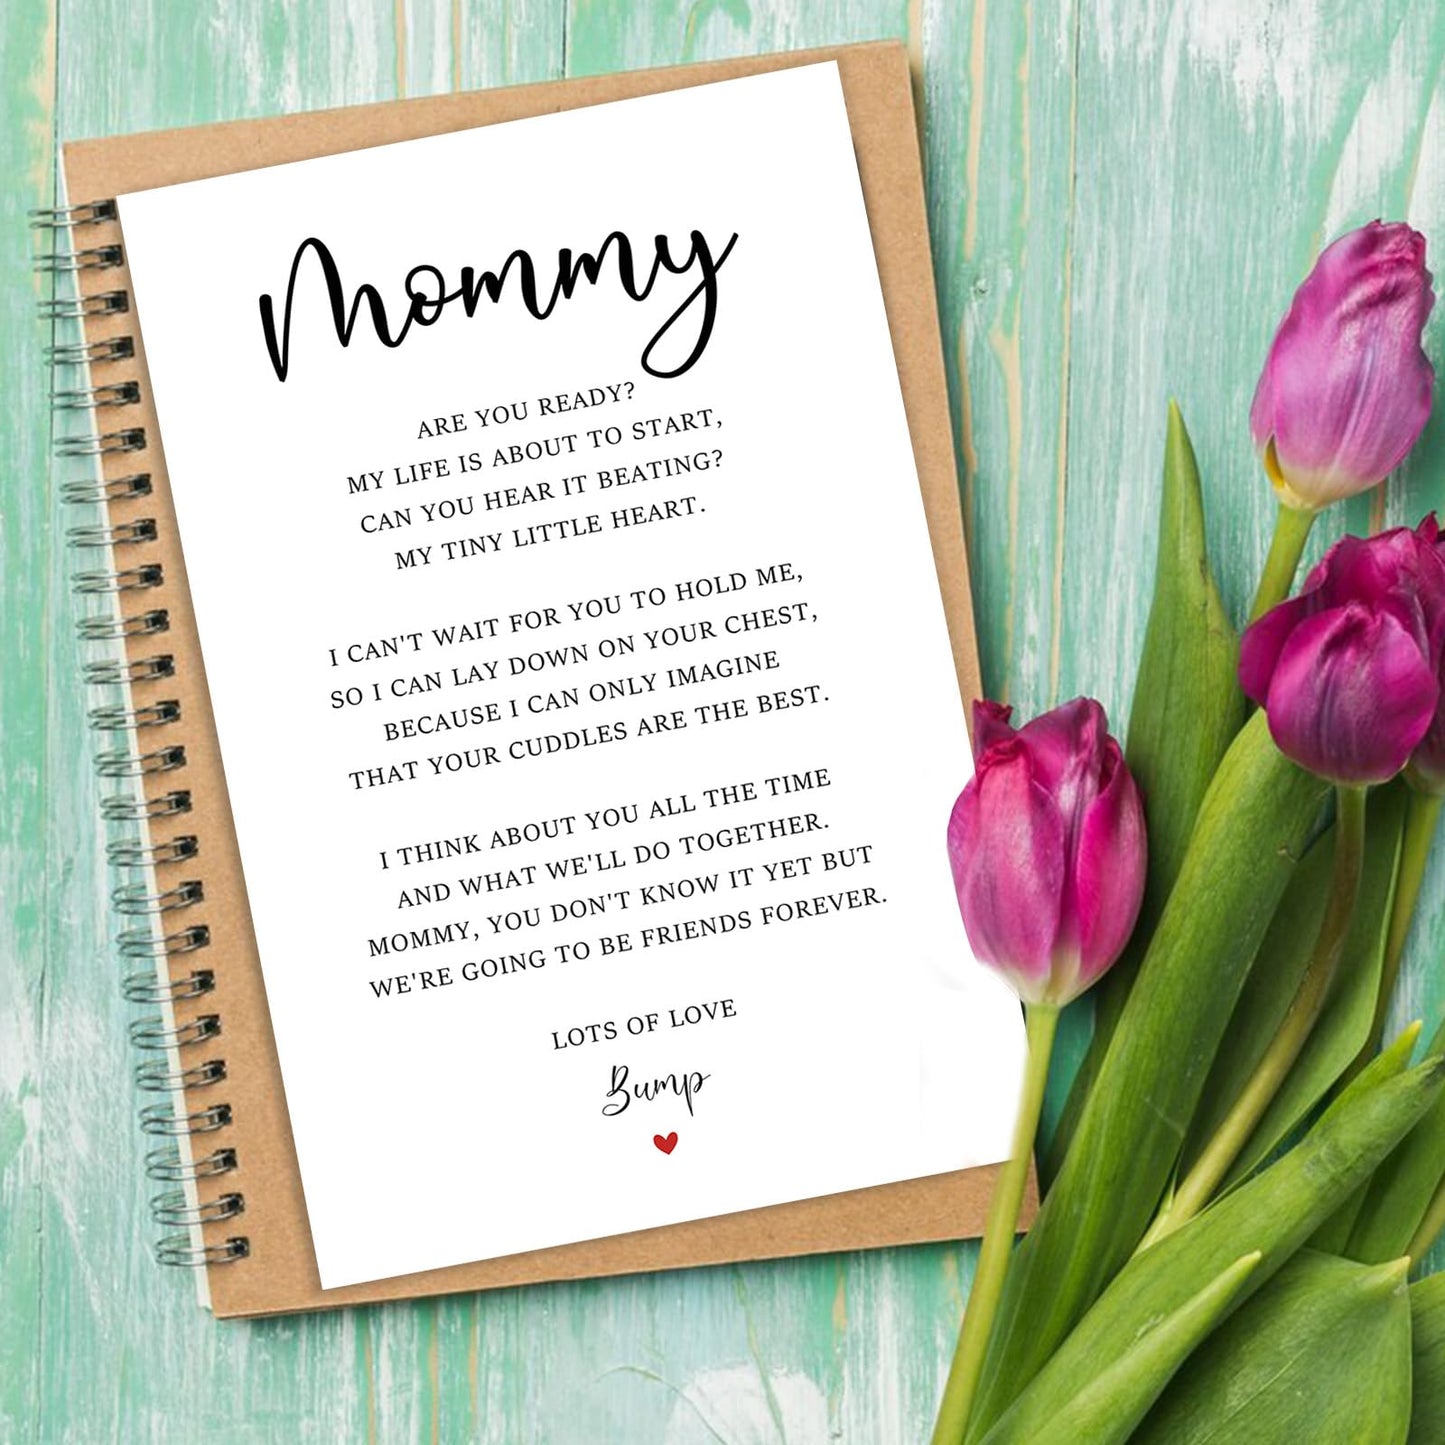 Mommy
ARE YOU READY?
MY LIFE IS ABOUT TO START,
CAN YOU HEAR IT BEATING?
MY TINY LITTLE HEART.
I CAN'T WAIT FOR YOU TO HOLD ME,
SO I CAN LAY DOWN ON YOUR CHEST,
BECAUSE I CAN ONLY IMAGINE
THAT YOUR CUDDLES ARE THE BEST.
I THINK ABOUT YOU ALL THE TIME
AND WHAT WE'LL DO TOGETHER.
MOMMY, YOU DON'T KNOW IT YET BUT
WE'RE GOING TO BE FRIENDS FOREVER.
LOTS OF LOVE
Bump